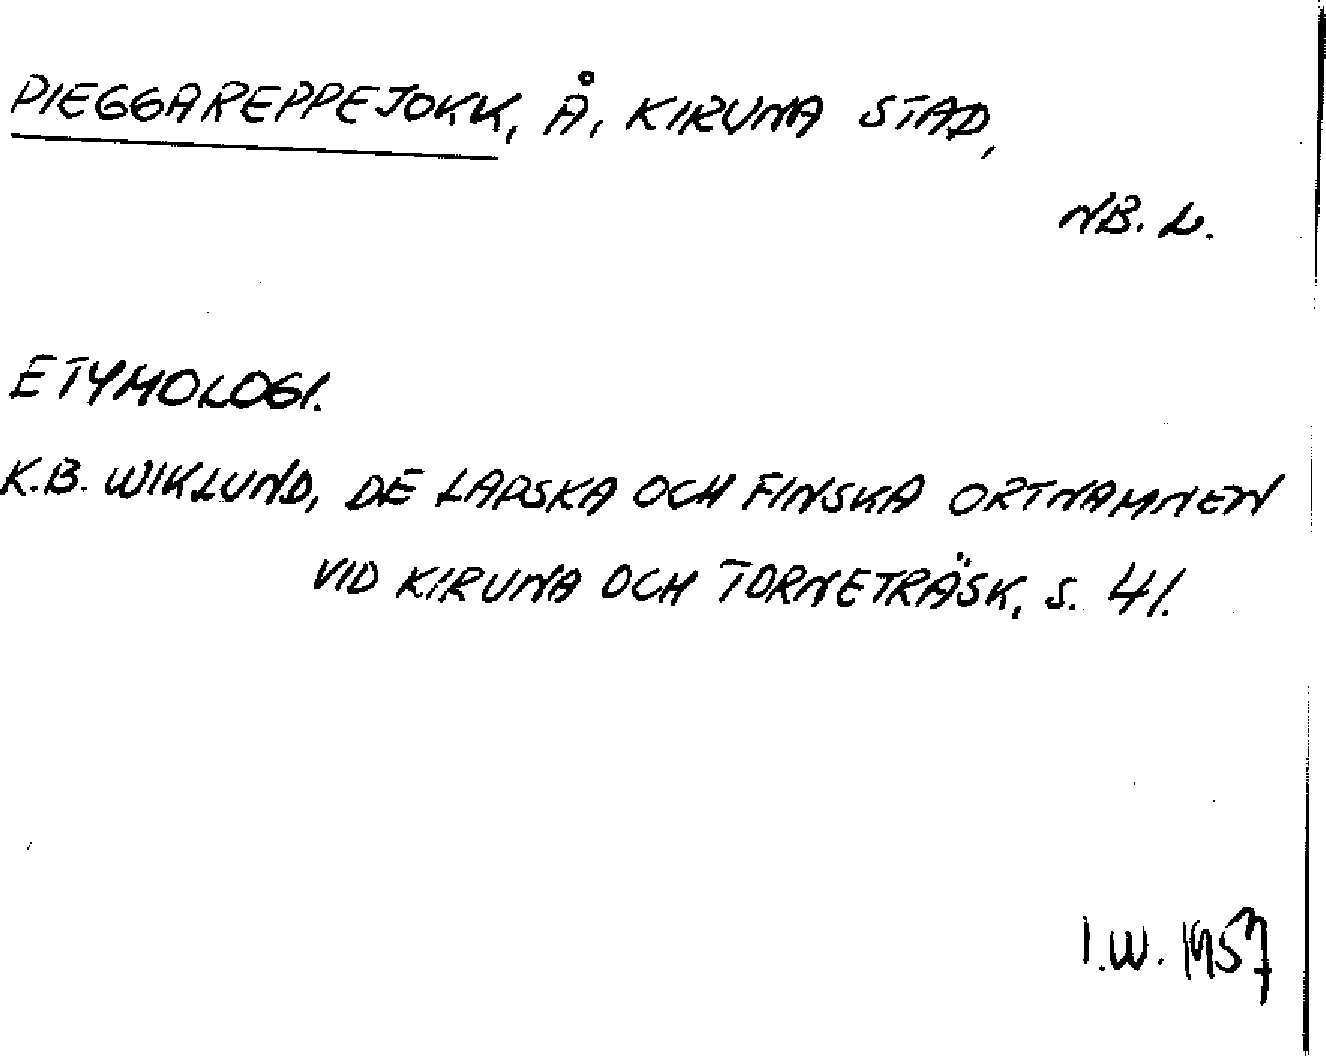 PIEGGAREPPEJOKK, Å, KIRUNA STAD,
NB. L.
ETYMOLOGI.
K.B. WIKLUND, DE LAPSKA OCH FINSKA ORTNAMNEN
VID KIRUNA OCH TORNETRÄSK, S. 41.
I.W. 1957